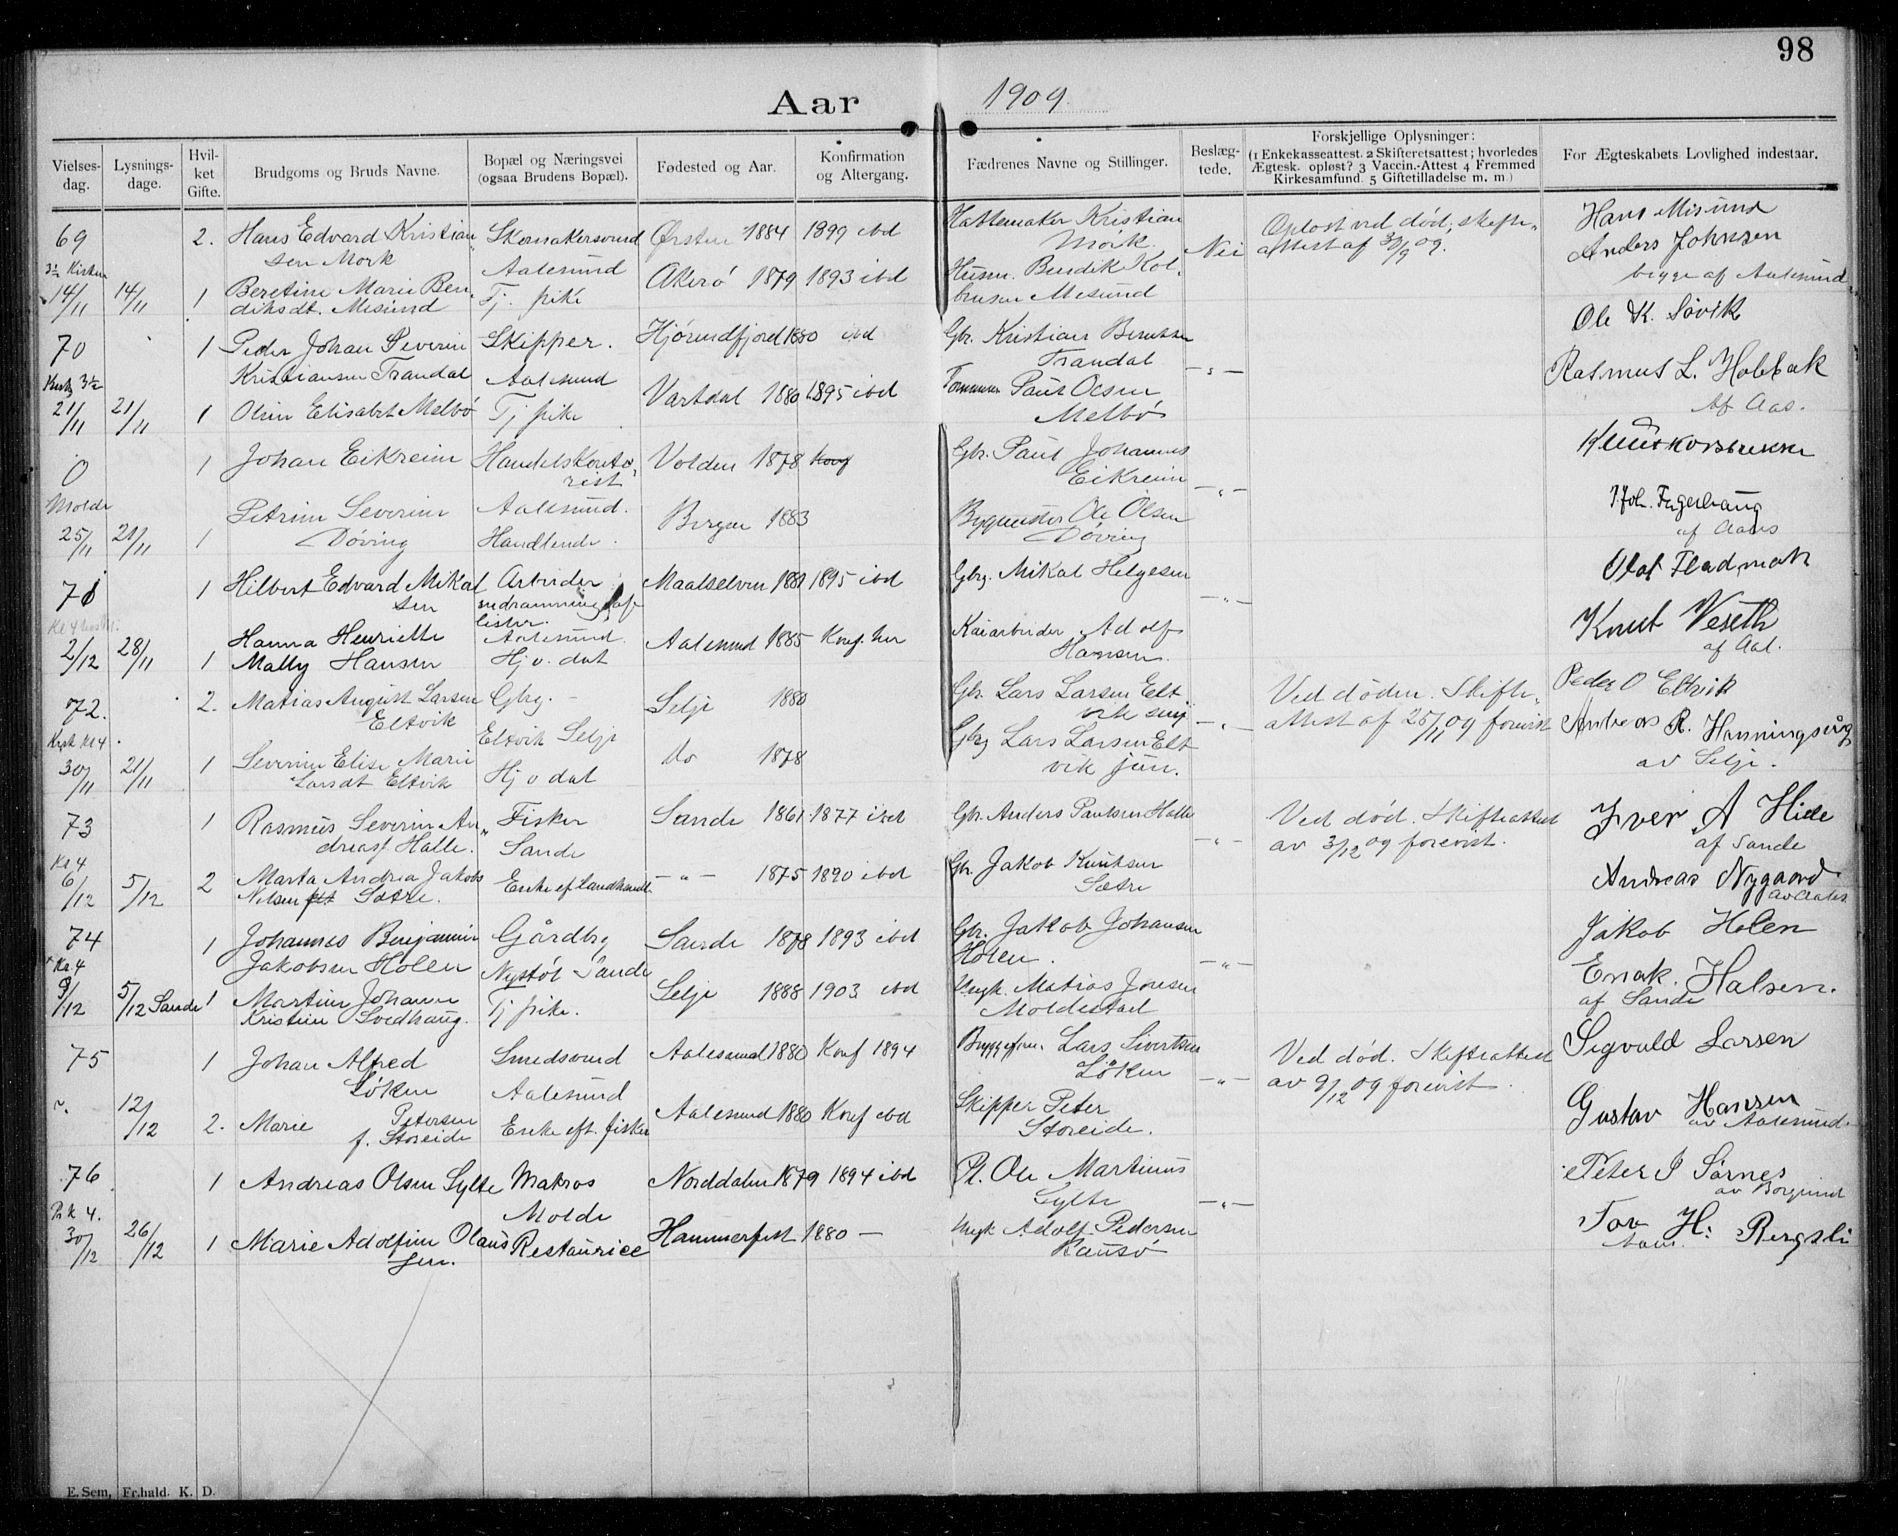 98
Aar 1909.
Vielses-dag. Lysnings-dage. Hvil-ket Gifte. Brudgoms og Bruds Navne. Bopæl og Næringsvei (ogsaa Brudens Bopæl). Fødested og Aar. Konfirmation og Altergang. Fædrenes Navne og Stillinger. Beslæg-tede. Forskjellige Oplysninger: (1 Enkekasseattest. 2 Skifteretsattest; hvorledes Ægtesk. opløst? 3 Vaccin.-Attest 4 Fremmed Kirkesamfund. 5 Giftetilladelse m. m.) For Ægteskabets Lovlighed indestaar.
69 2. Hans Edvard Kristian Skomakersvend Ørsten 1884 1899 ibd Hattemaker Kristian Opløst ved død, skifte- Hans Misund
sen Mork Aalesund Mork. Nei attest af 30/9 09. Anders Johnsen
3½ Kirken Akerø 1879 1893 ibd Husm. Bendik Kol- begge af Aalesund
14/11 14/11 1 Beretine Marie Ben- Tj. pike
diksdt. Misund Misund Ole K. Søvik
70 1 Peder Johan Severin Skipper. Hjørundfjord 1880 ibd Gbr. Kristian Berntsen
Kristiansen Trandal Aalesund Trandal -"- Rasmus L. Holebak
3½ Vartdal 1880 1895 ibd Paul Olsen Af Aas.
21/11 21/11 1 Elisabet Melbø Tj pike Melbø
0 1 Johan Eikreim Handelskonto- Volden 1878 Gbr. Paul Johannes
rist Eikreim -"-
Molde Petrine Severine Aalesund. Bergen 1883 Bygmester Ole Olsen Joh. Fagerhaug
25/11 21/11 1 Døving Handlende. Døving af Aales
71 1 Hilbert Edvard Mikal Arbeider Maalselven 1895 ibd Gbrg. Mikal Helgesen Olaf Fladmark
sen -"-
Hanna Henriette Aalesund. Aalesund 1885 Konf. her Kaiarbeider Adolf Knut Veseth
2/12 28/11 1 Mally Hansen Hj o. dat Hansen. af Aal.
72. 2. Matias August Larsen Gbrg. Selje 1880 Gbr. Lars Larsen Elt Ved døden. Skifte- Peder O Eltvik
Eltvik Eltvik Selje vik -"- attest af 25/11 09 forevist Andreas R. Hanningsvåg
Kl 4 Severine Elise Marie do 1878 Gbrg Lars Larsen Elt av Selje.
30/11 21/11 1 Larsdt Eltvik Hj o dat vik jun.
73 1 Rasmus Severin An- Fisker Sande 1861 1877 ibd Gbr. Anders Paulsen Halle Ved død. Skifteattest Iver A Hide
dreas. Halle. Sande -"- av 3/12 09 forevist. af Sande
Kl 4 Marta Andrea Jakobs -"- 1875 1890 ibd Gbr. Jakob Knutsen Andreas Nygaard
6/12 5/12 2 Nelsen Sætre. Enke ef Landhandl. Sætre av Aales
74 1 Johannes Benjamin Gårdbg Sande 1878 1893 ibd Gbr. Jakob Johansen Jakob Holen
Kl. 4 Jakobsen Holen Nystøl Sande Holen. -"-
9/12 5/12 Sande 1 Martine Johanne Tj pike. Selje 1888 1903 ibd Matias Jonsen Halsen.
Kristine Moldestad af Sande
75 1 Johan Alfred Smedsvend Aalesund 1880 Konf 1894 Lars Sivertsen Ved død. Skifteattest Sigvald Larsen
Løken Aalesund Løken -"- av 9/12 09 forevist
12/12 2. Marie Petersen Aalesund 1880 Konf ibd Skipper Peter Gustav Hansen
f. Storeide Enke eft. fisker Storeide. av Aalesund.
76 1 Andreas Olsen Sylte Matros Norddalen 1879 1894 ibd Pl. Ole Martinus Peter J Sørnes
Molde Sylte -"- av Borgund
30/12 26/12 1 Marie Adolfine Olaus Restaurice Hammerfest 1880 — Adolf Pedersen Tov H: Bergsli
sen.
E. Sem, Fr.hald. K. D.